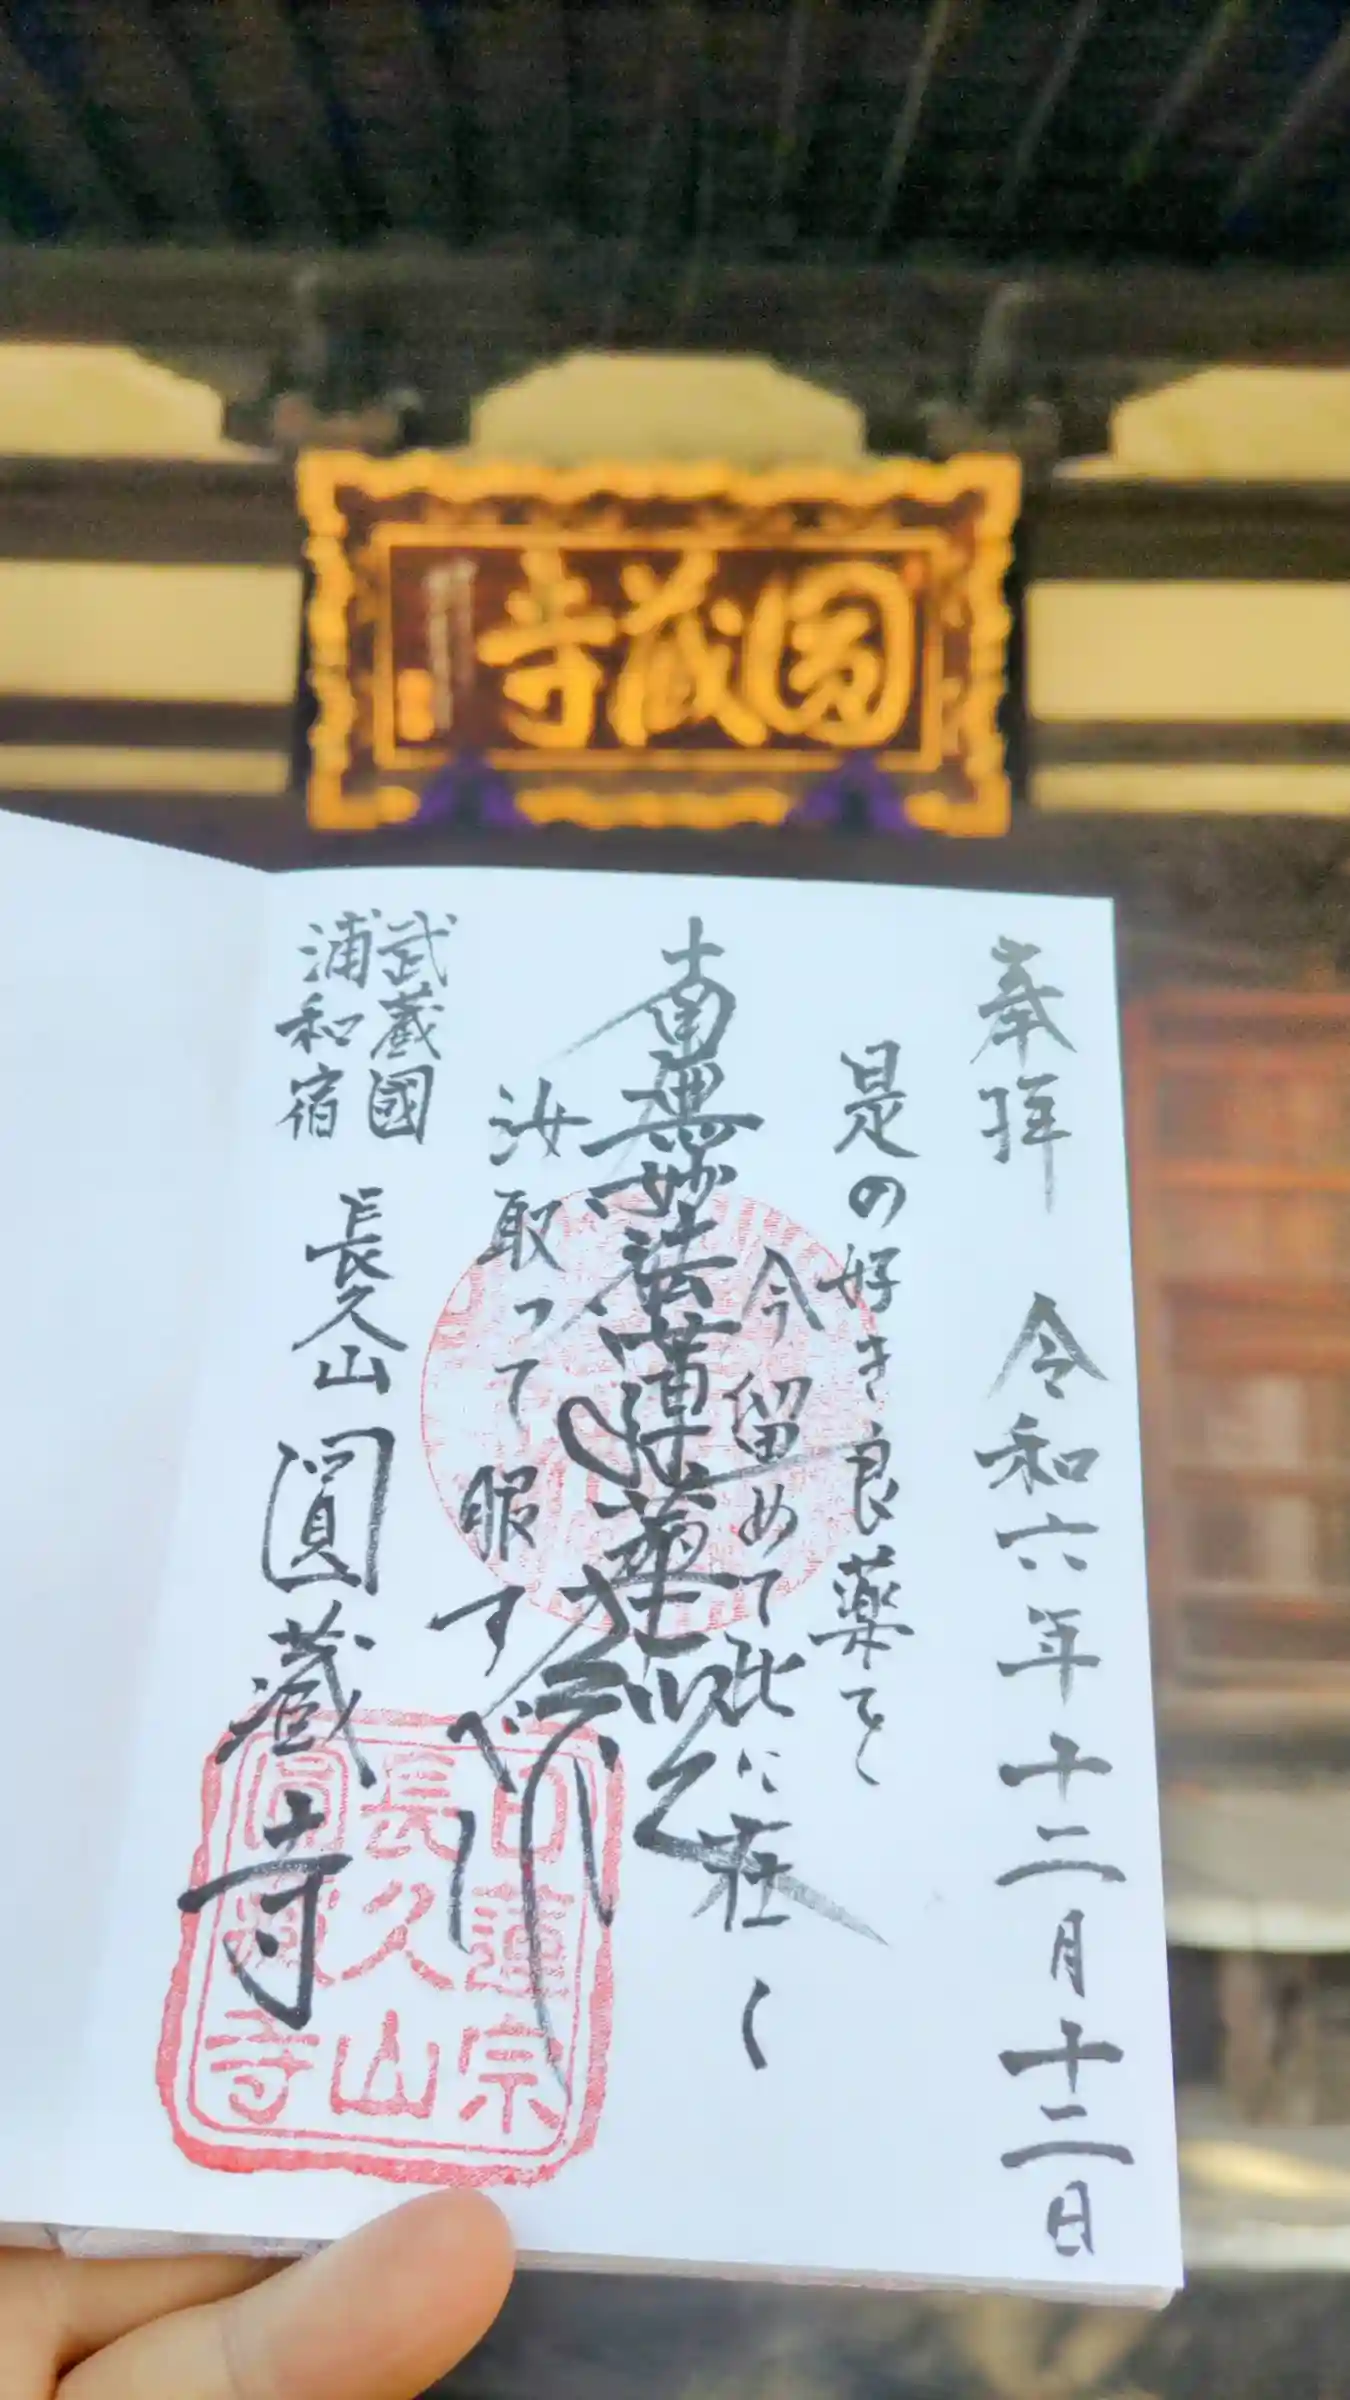 圓蔵寺
奉拝 令和六年十二月十二日
是の好き良薬を
今留めて此に在く
南無妙法蓮華経
汝取って服すべし
武蔵國
浦和宿
長久山 圓蔵寺
日蓮宗
長久山
圓蔵寺